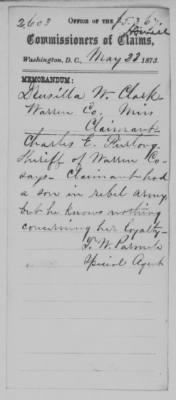 2603
OFFICE OF THE
Commissioners of Claims,
Washington, D.C., May 22 1873.
MEMORANDUM:
Drusilla W. Clark
Warren Co. Miss
Claimant
Charles E. Furlong
Sheriff of Warren Co
says - Claimant had
a son in rebel army
but he knows nothing
concerning her loyalty -
Special Agent